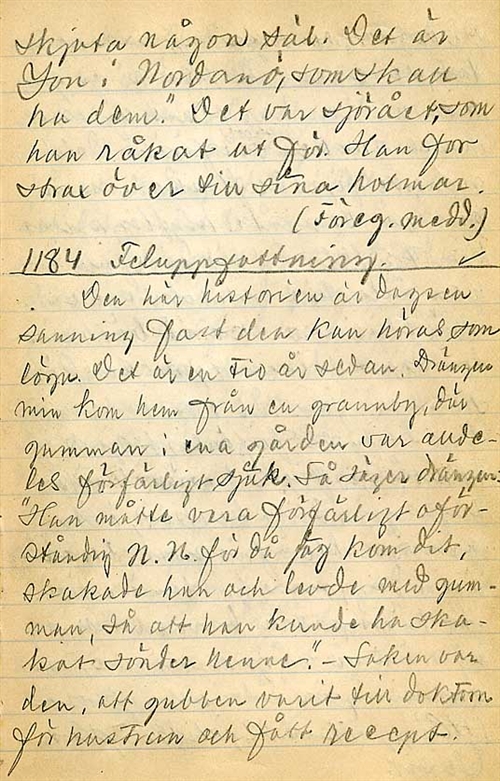 skjuta någon säl. Det är
Jon i Nordanö, som skall
ha dem." Det var sjörået, som
han råkat ut för. Han for
strax över till sina holmar.
(Föreg. medd.)
1184 Feluppfattning. ✓
Den här historien är dagsen
sanning fast den kan höras som
lögn. Det är en tio år sedan. Drängen
min kom hem från en grannby, där
gumman i ena gården var alde-
les förfärligt sjuk. Så säger drängen:
"Han måtte vera förfärligt oför-
ståndig N. N. för då jag kom dit,
skakade han och levde med gum-
man, så att han kunde ha ska-
kat sönder henne." – Saken var
den, att gubben varit till doktorn
för hustrun och fått recept.